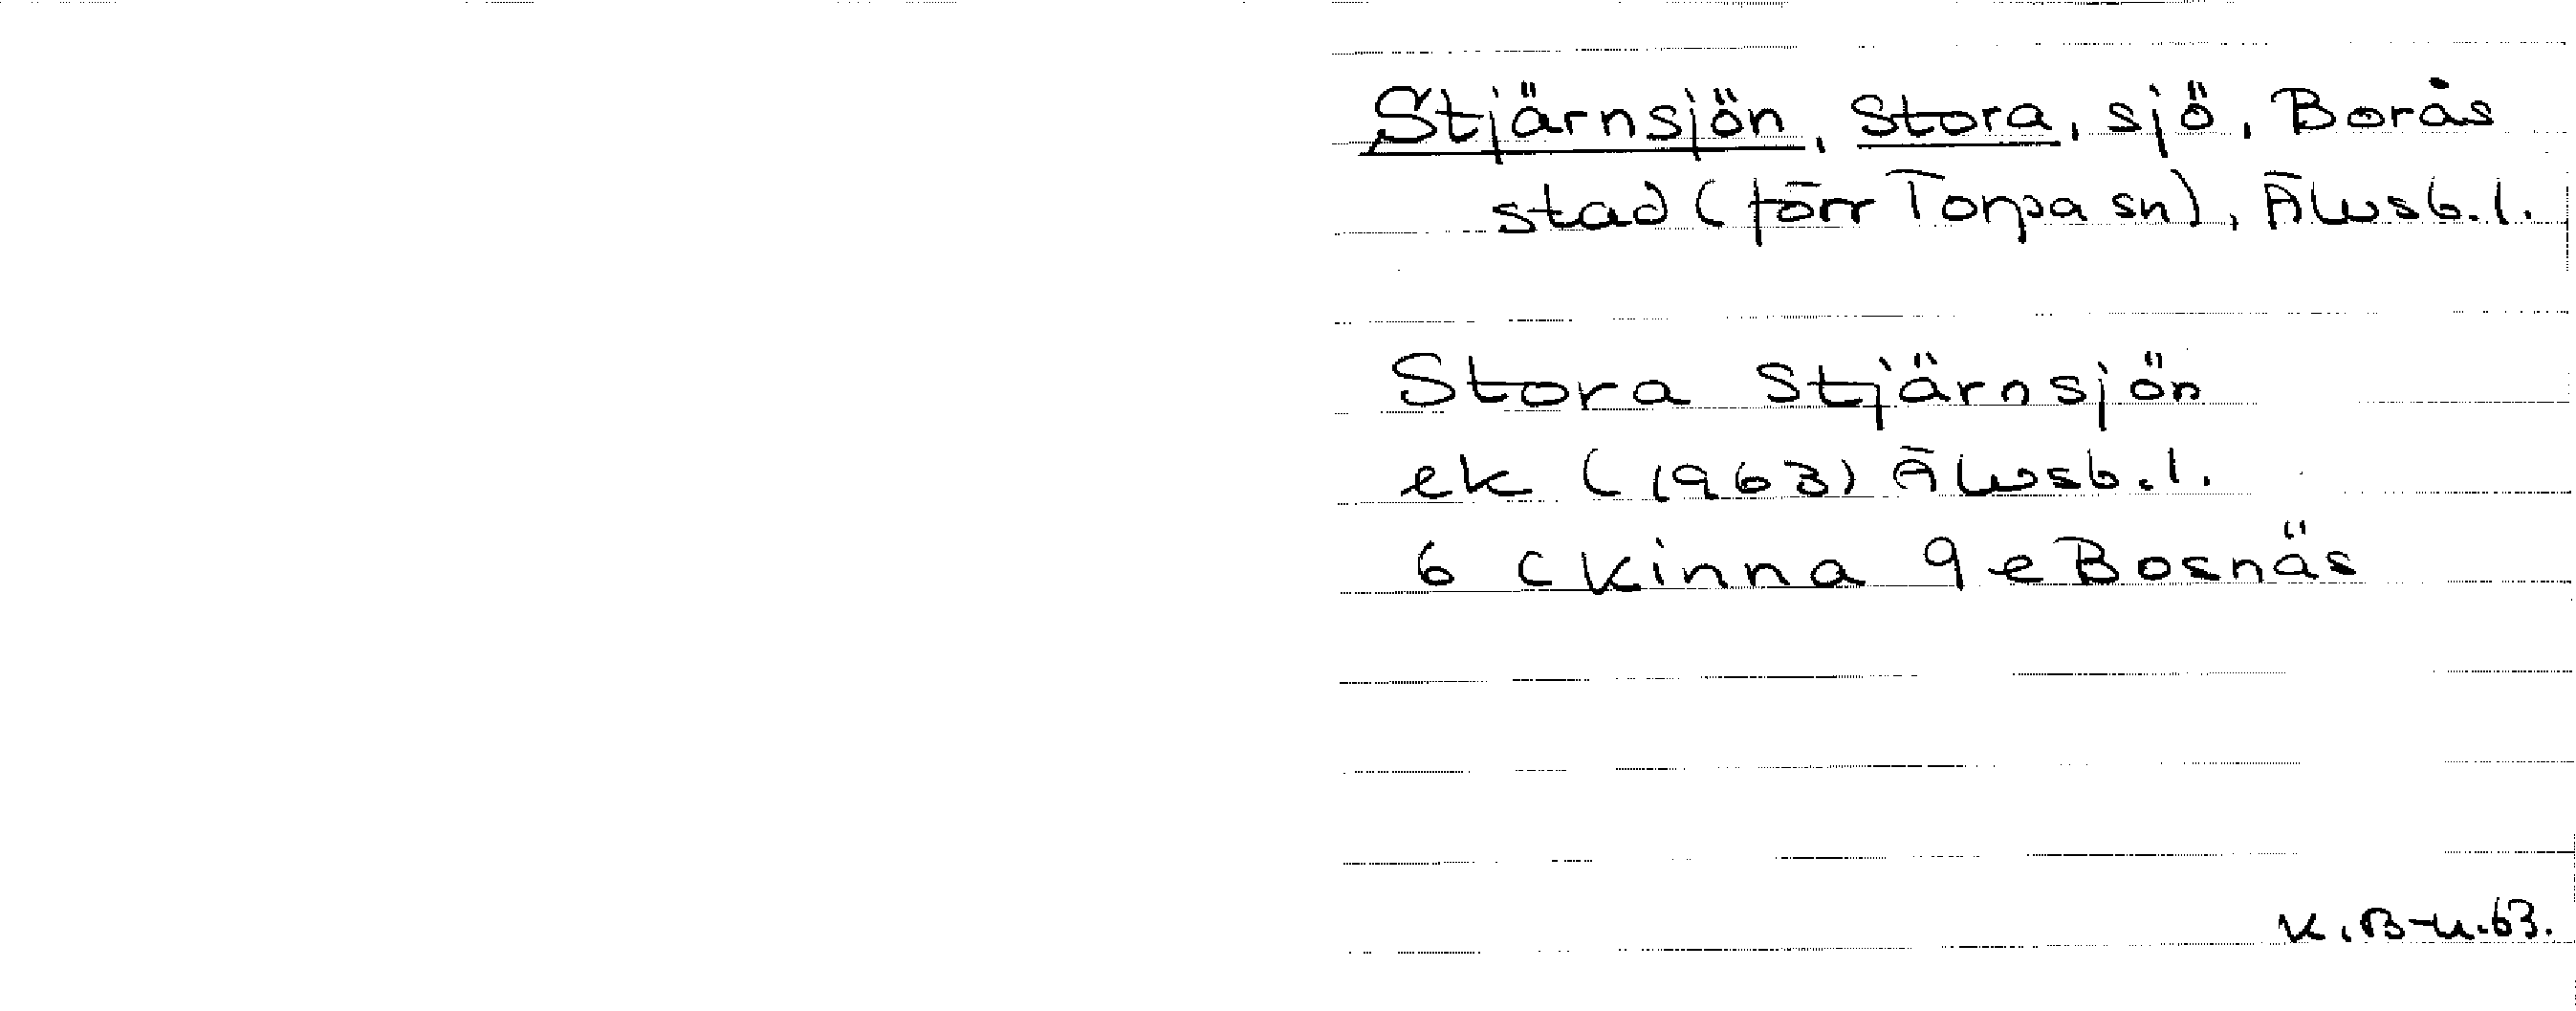 Stjärnsjön, Stora, sjö, Borås
stad (förr Torpa sn), Älvsb. l.
Stora Stjärnsjön
ek (1963) Älvsb. l.
6 C Kinna 9 e Bosnäs
K. B-u. 63.